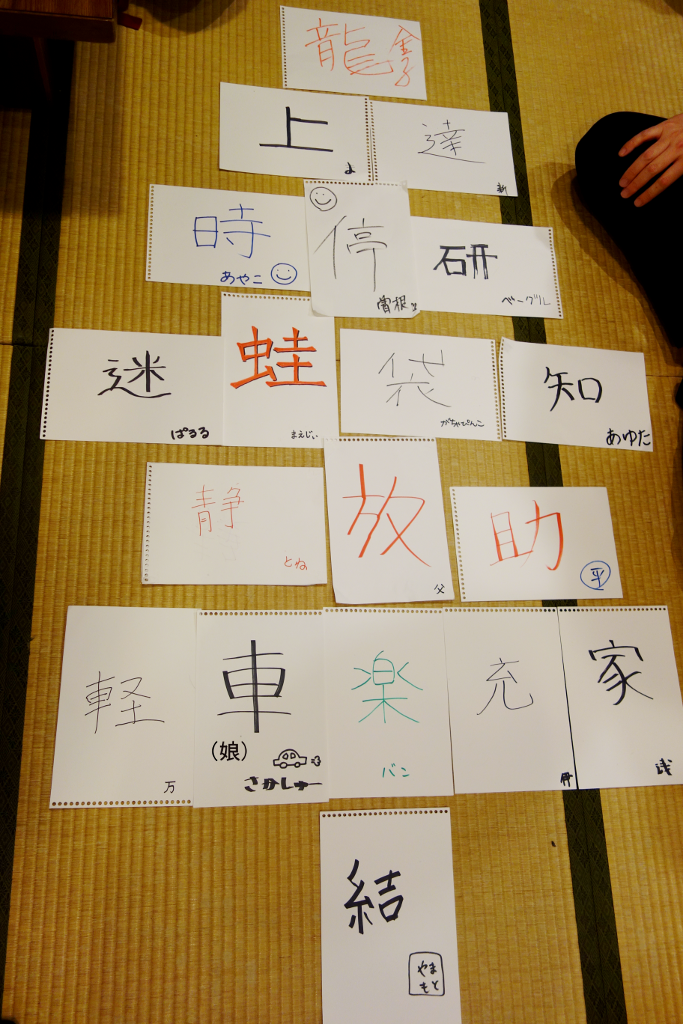 龍 金子
上 よ
達 新
時 あやこ
停 曽根
研 べーグル
迷 ぱるる
蛙 まえじぃ
袋 がちゃぴんこ
知 あゆた
静 とね
放 父
助 平
軽 万
車
(娘)
さかしゅー
楽 バン
充
家 議
結
やまもと